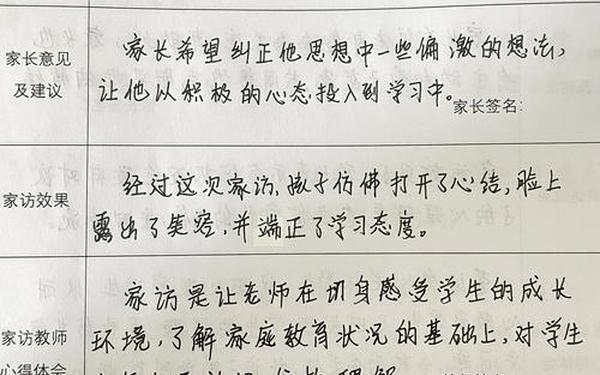 家长意见
及建议
家长希望纠正他思想中一些偏激的想法,
让他以积极的心态投入到学习中。
家长签名:
家访效果
经过这次家访,孩子仿佛打开了心结,脸上
露出了笑容,并端正了学习态度。
家访教师
心得体会
家访是让老师在切身感受学生的成长
环境,了解家庭教育状况的基础上,对学生